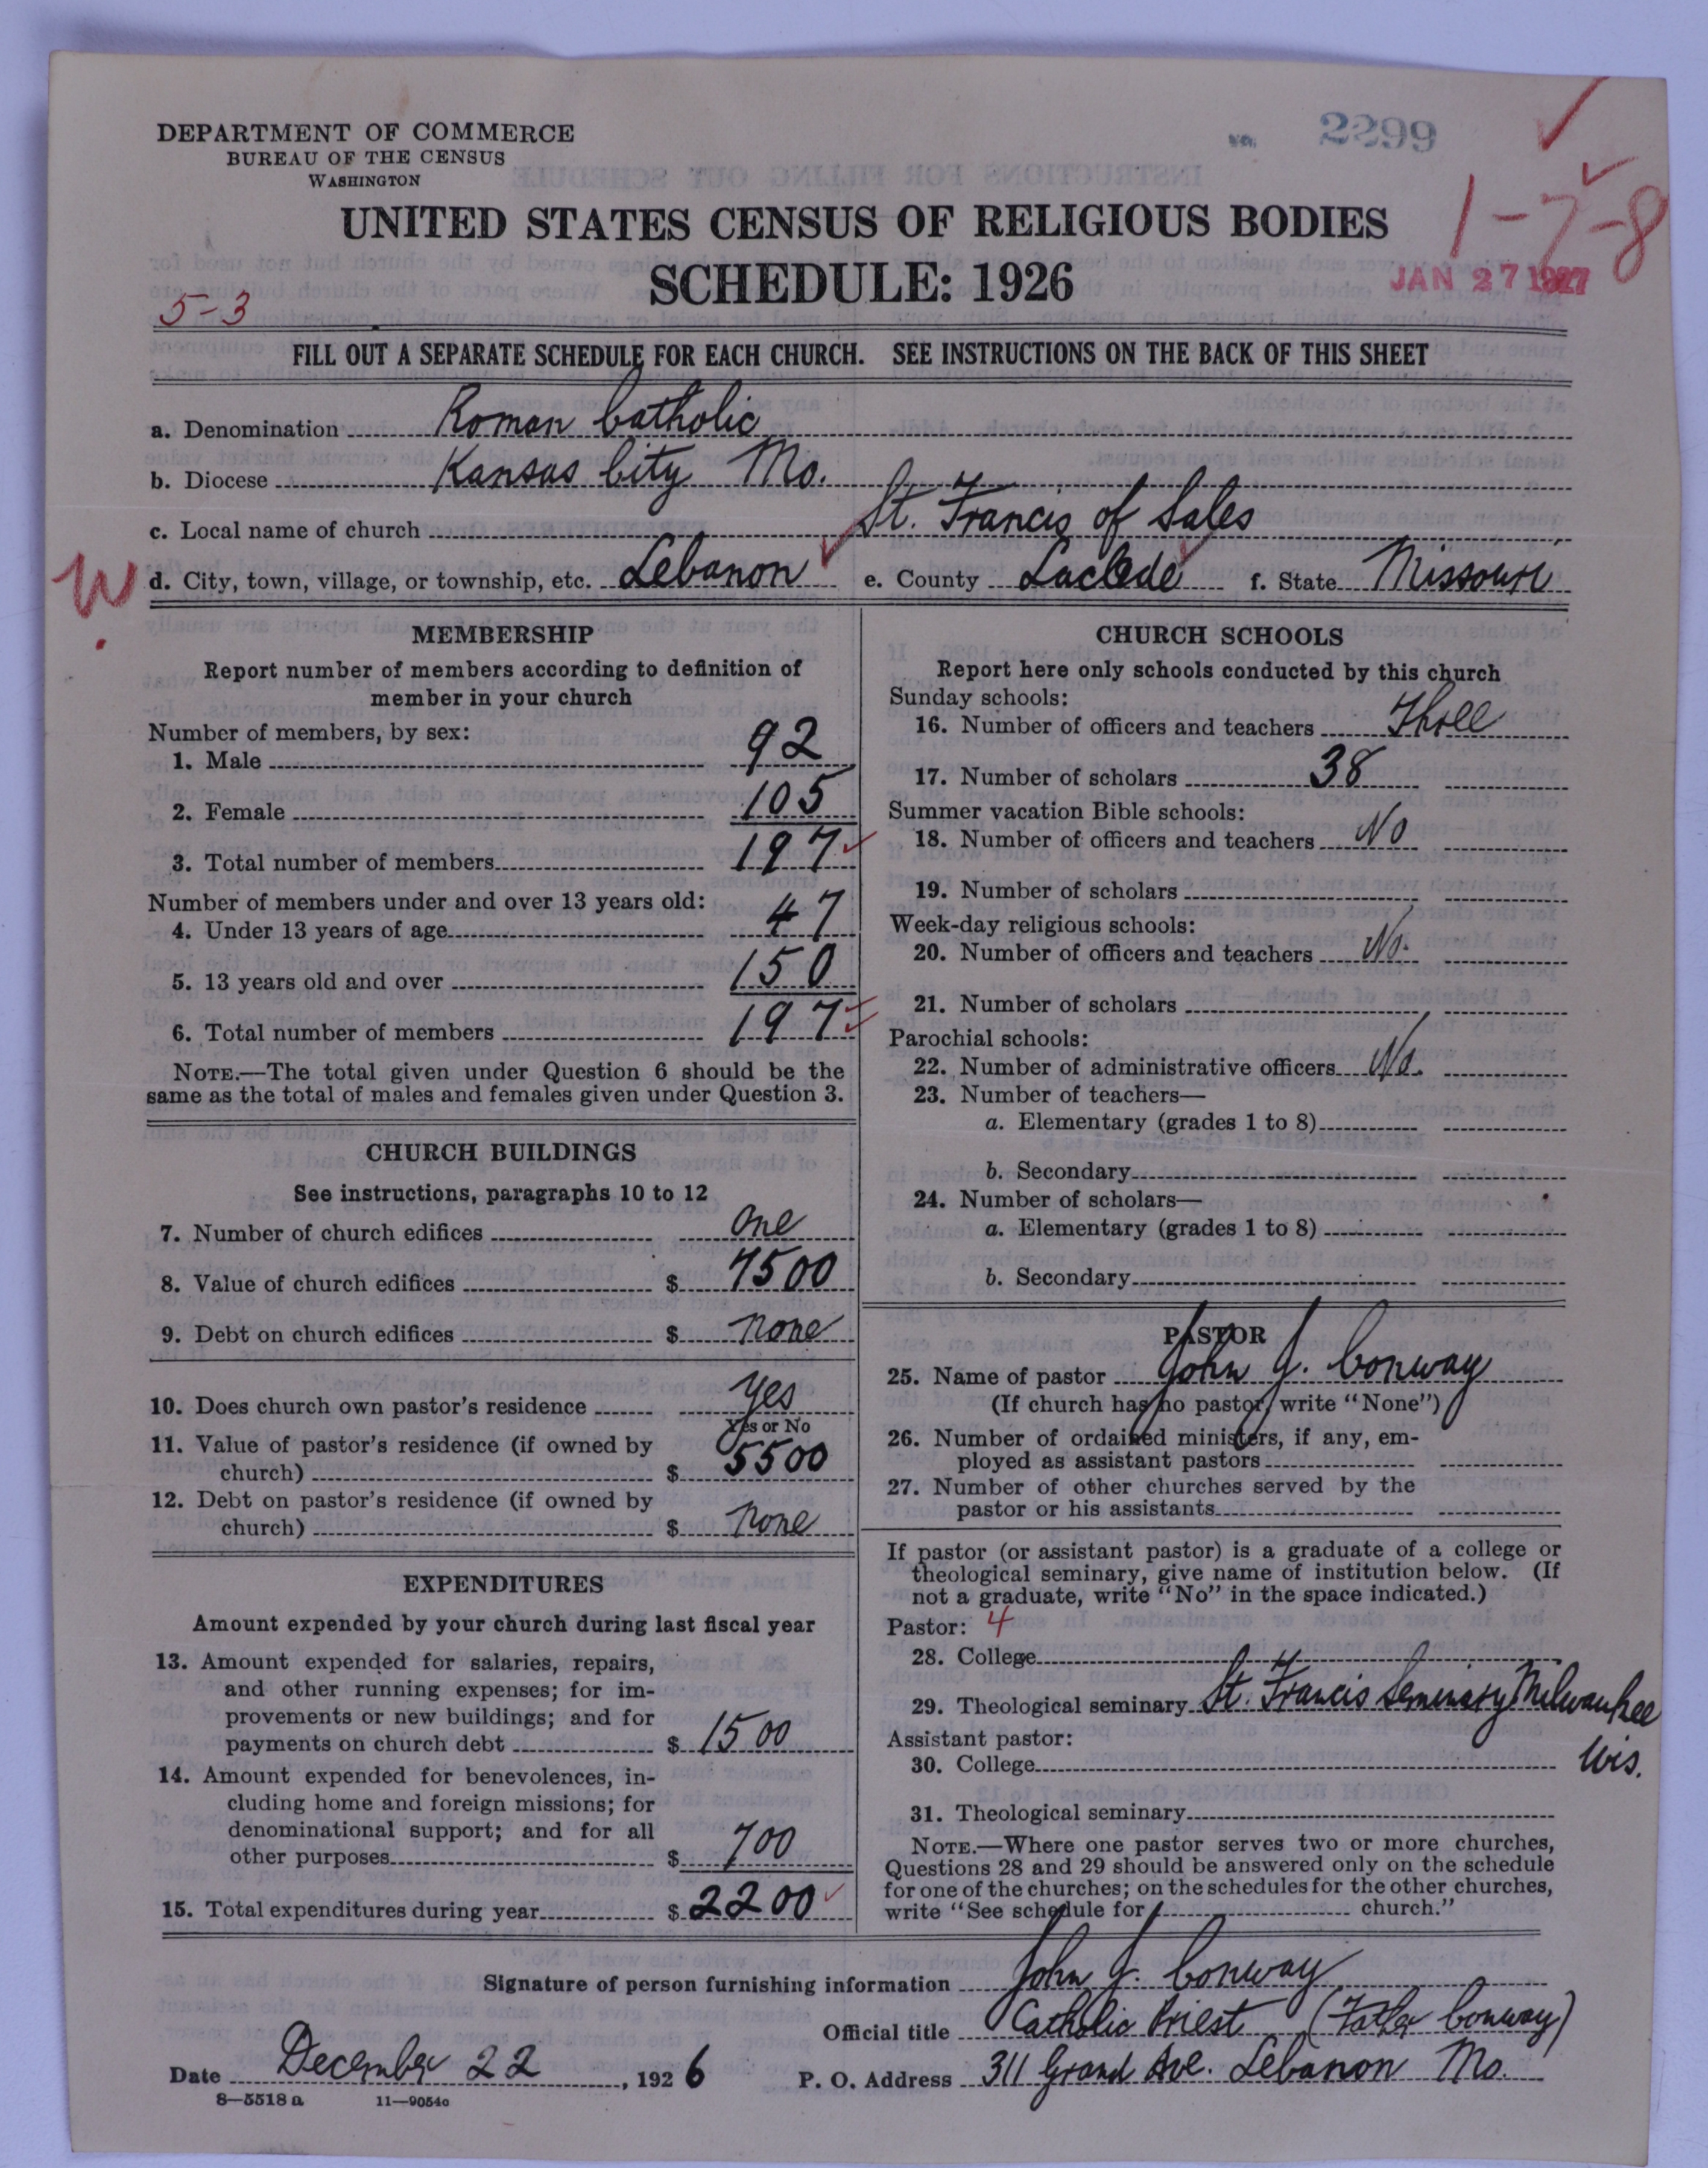 DEPARTMENT OF COMMERCE
BUREAU OF THE CENSUS
WASHINGTON
No. 2299
1-7-8
UNITED STATES CENSUS OF RELIGIOUS BODIES
SCHEDULE: 1926
JAN 27 1927
5-3
FILL OUT A SEPARATE SCHEDULE FOR EACH CHURCH. SEE INSTRUCTIONS ON THE BACK OF THIS SHEET
a. Denomination Roman Catholic
b. Diocese Kansas City Mo.
c. Local name of church St. Francis of Sales
W.
d. City, town, village, or township, etc. Lebanon e. County Laclede f. State Missouri
MEMBERSHIP
Report number of members according to definition of
member in your church
Number of members, by sex:
1. Male 92
2. Female 105
3. Total number of members 197
Number of members under and over 13 years old:
4. Under 13 years of age 47
5. 13 years old and over 150
6. Total number of members 197
NOTE.—The total given under Question 6 should be the
same as the total of males and females given under Question 3.
CHURCH BUILDINGS
See instructions, paragraphs 10 to 12
7. Number of church edifices One
8. Value of church edifices $ 7500
9. Debt on church edifices $ None
10. Does church own pastor's residence Yes
Yes or No
11. Value of pastor's residence (if owned by
church) $ 5500
12. Debt on pastor's residence (if owned by
church) $ None
EXPENDITURES
Amount expended by your church during last fiscal year
13. Amount expended for salaries, repairs,
and other running expenses; for im-
provements or new buildings; and for
payments on church debt $ 1500
14. Amount expended for benevolences, in-
cluding home and foreign missions; for
denominational support; and for all
other purposes $ 700
15. Total expenditures during year $ 2200
CHURCH SCHOOLS
Report here only schools conducted by this church
Sunday schools:
16. Number of officers and teachers Three
17. Number of scholars 38
Summer vacation Bible schools:
18. Number of officers and teachers No
19. Number of scholars
Week-day religious schools:
20. Number of officers and teachers No.
21. Number of scholars
Parochial schools:
22. Number of administrative officers No.
23. Number of teachers—
a. Elementary (grades 1 to 8)
b. Secondary
24. Number of scholars—
a. Elementary (grades 1 to 8)
b. Secondary
PASTOR
25. Name of pastor John J. Conway
(If church has no pastor, write "None")
26. Number of ordained ministers, if any, em-
ployed as assistant pastors
27. Number of other churches served by the
pastor or his assistants
If pastor (or assistant pastor) is a graduate of a college or
theological seminary, give name of institution below. (If
not a graduate, write "No" in the space indicated.)
Pastor: 4
28. College
29. Theological seminary St. Francis Seminary Milwaukee
Wis.
Assistant pastor:
30. College
31. Theological seminary
NOTE.—Where one pastor serves two or more churches,
Questions 28 and 29 should be answered only on the schedule
for one of the churches; on the schedules for the other churches,
write "See schedule for church."
Signature of person furnishing information John J. Conway
Official title Catholic Priest (Father Conway)
Date December 22, 1926 P. O. Address 311 Grand Ave. Lebanon Mo.
8—5518 a 11—9054c